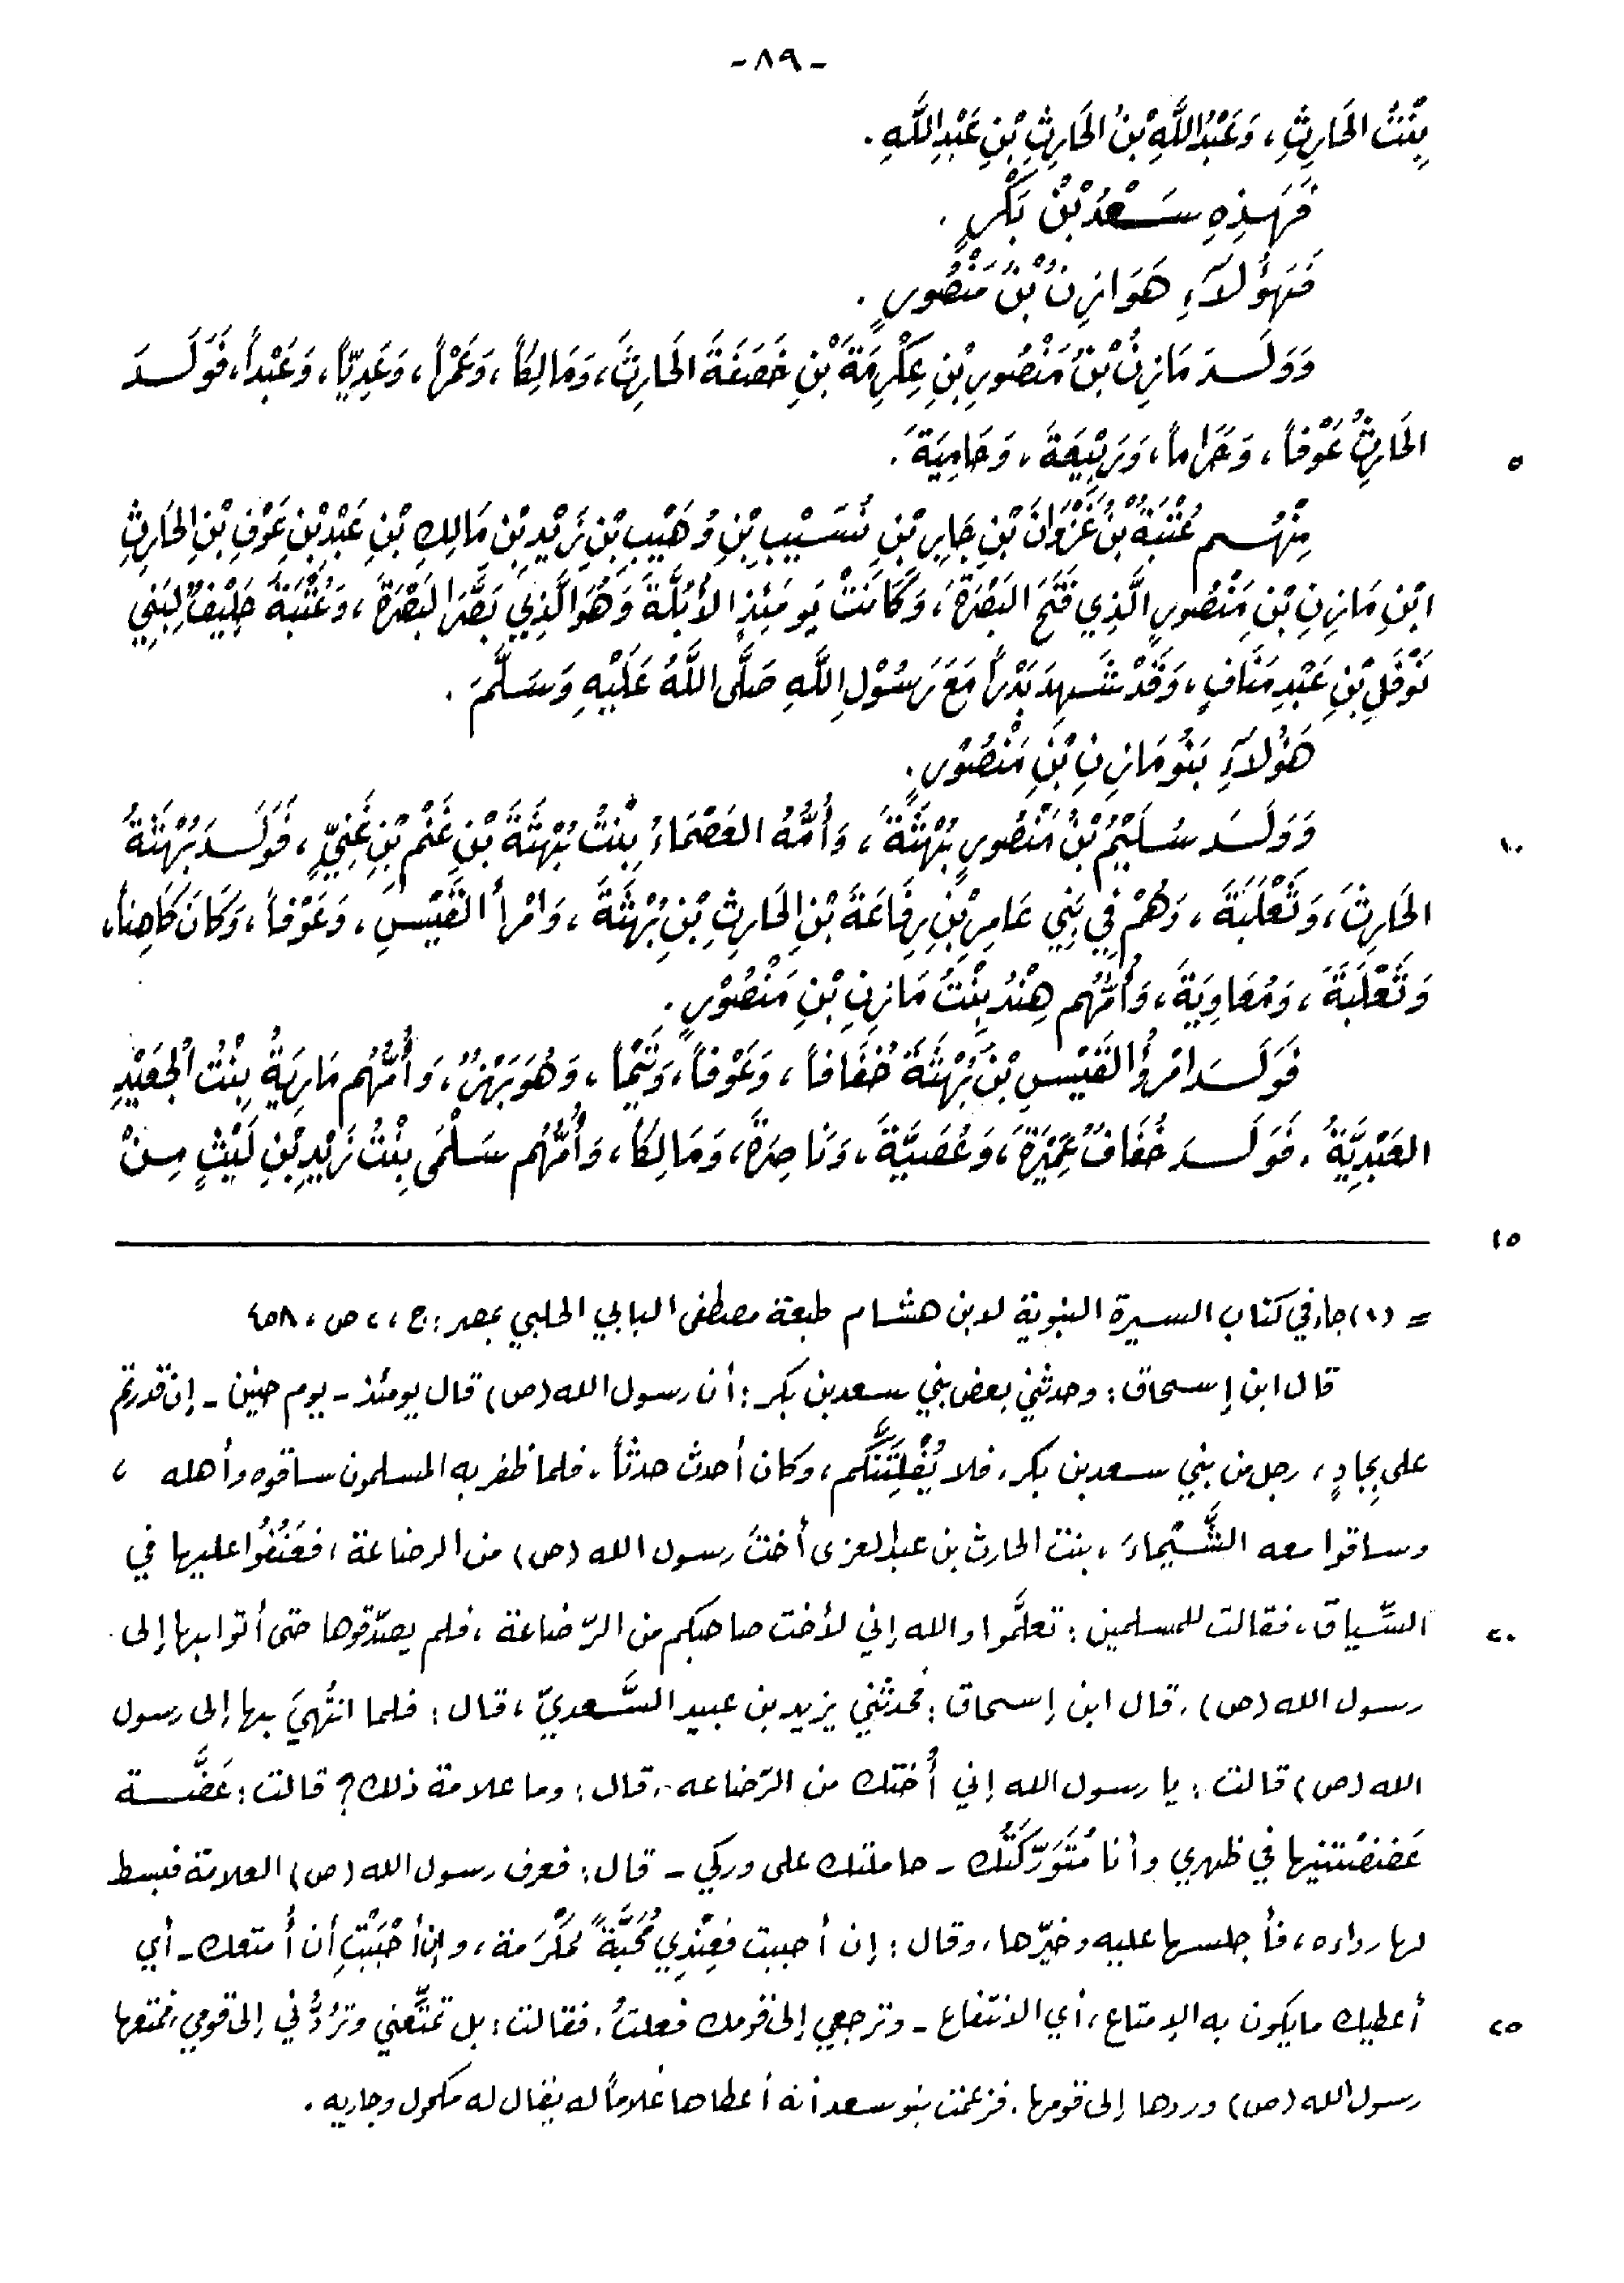 -٨٩-
بِنْتُ الحَارِثِ، وَعَبْدُ اللَّهِ بْنُ الحَارِثِ بْنِ عَبْدِ اللَّهِ.
فَهَذِهِ سَعْدُ بْنُ بَكْرٍ.
فَهَؤُلَاَءِ هَوَازِنُ بْنُ مَنْصُورٍ.
وَوَلَدَ مَازِنُ بْنُ مَنْصُورِ بْنِ عِكْرِمَةَ بْنِ خَصَفَةَ الحَارِثَ، وَمَالِكاً، وَعَمْراً، وَعَدِيّاً، وَعَبْداً، فَوَلَدَ
الحَارِثُ عَوْفاً، وَحَرَاماً، وَرَبِيْعَةَ، وَحَامِيَةَ.
٥
مِنْهُم عُتْبَةُ بْنُ غَزْوَانَ بْنِ جَابِرِ بْنِ نُسَيْبِ بْنِ وُهَيْبِ بْنِ زَيْدِ بْنِ مَالِكِ بْنِ عَبْدِ بْنِ عَوْفِ بْنِ الحَارِثِ
ابْنِ مَازِنِ بْنِ مَنْصُورٍ الَّذِي فَتَحَ البَصْرَةَ، وَكَانَتْ يَوْمَئِذٍ الأُبُلَّةَ وَهُوَ الَّذِي بَصَّرَ البَصْرَةَ، وَعُتْبَةُ حَلِيْفٌ لِبَنِي
نَوْفَلِ بْنِ عَبْدِ مَنَافٍ، وَقَدْ شَهِدَ بَدْراً مَعَ رَسُوْلِ اللَّهِ صَلَّى اللَّهُ عَلَيْهِ وَسَلَّمَ.
هَؤُلَاَءِ بَنُو مَازِنِ بْنِ مَنْصُوْرٍ.
وَوَلَدَ سُلَيْمُ بْنُ مَنْصُورٍ بُهْثَةَ، وَأُمُّهُ العَصْمَاءُ بِنْتُ بُهْثَةَ بْنِ غَنْمِ بْنِ غَنِيٍّ، فَوَلَدَ بُهْثَةُ
١٠
الحَارِثَ، وَثَعْلَبَةَ، وَهُمْ فِي بَنِي عَامِرِ بْنِ رِفَاعَةَ بْنِ الحَارِثِ بْنِ بُهْثَةَ، وَامْرأَ القَيْسِ، وَعَوْفاً، وَكَانَ كَاهِناً،
وَثَعْلَبَةَ، وَمُعَاوِيَةَ، وَأُمُّهُم هِنْدُ بِنْتُ مَازِنِ بْنِ مَنْصُوْرٍ.
فَوَلَدَ امْرؤُ القَيْسِ بْنُ بُهْثَةَ خُفَافاً، وَعَوْفاً، وَتَيْماً، وَهُوَ بَهْزٌ، وَأُمُّهُم مَارِيَةُ بِنْتُ الْجُعَيْدِ
العَبْدِيَّةُ. فَوَلَدَ خُفَافُ عُمَيْرَةَ، وَعُصَيَّةَ، وَنَاصِرَةَ، وَمَالِكاً، وَأُمُّهُم سَلْمَى بِنْتُ زَيْدِ بْنِ لَيْثٍ مِنْ
١٥
= (١) جاء في كتاب السيرة النبوية لابن هشام طبعة مصطفى البابي الحلبي بمصر: ج، ٢ ص، ٤٥٨
قال ابن إسحاق: وحدثني بعض بني سعد بن بكر: أن رسول الله (ص) قال يومئذ - يوم حنين - إن قدرتم
على بِجادٍ، رجل من بني سعد بن بكر، فلا يُفْلِتَنَّكُم، وكان أحدث حدثاً، فلما ظفر به المسلمون ساقوه وأهله ،
وساقوا معه الشَّيْماءَ، بنت الحارث بن عبد العزى أختَ رسول الله (ص) من الرضاعة، فعَنُفُوا عليها في
السِّياق، فقالت للمسلمين: تعلَّموا والله إني لأخت صاحبكم من الرّضاعة، فلم يصدّقوها حتى أتوا بها إلى
٢٠
رسول الله (ص). قال ابن إسحاق: فحدثني يزيد بن عبيد السَّعديّ، قال: فلما انتُهِيَ بها إلى رسول
الله (ص) قالت: يا رسول الله إني أُختك من الرّضاعه، قال: وما علامة ذلك؟ قالت: عَضَّة
عَضَضْتنيها في ظهري وأنا مُتَوَرِّكَتُك - حاملتك على وركي - قال: فعرف رسول الله (ص) العلامة فبسط
لها رداءه، فأجلسها عليه وخيّرها، وقال: إن أحببت فعِنْدِي مُحَبَّةً مُكْرَمة، وإن أحْبَبْتِ أن أُمتعك - أي
أعطيك ما يكون به الإمتاع، أي الانتفاع - وترجعي إلى قومك فعلتُ. فقالت: بل تمتّعني وترُدُّني إلى قومي، فمتعها
٢٥
رسول الله (ص) وردها إلى قومها. فزعمت بنو سعد أنه أعطاها غلاماً له يقال له مكحول وجاريه.